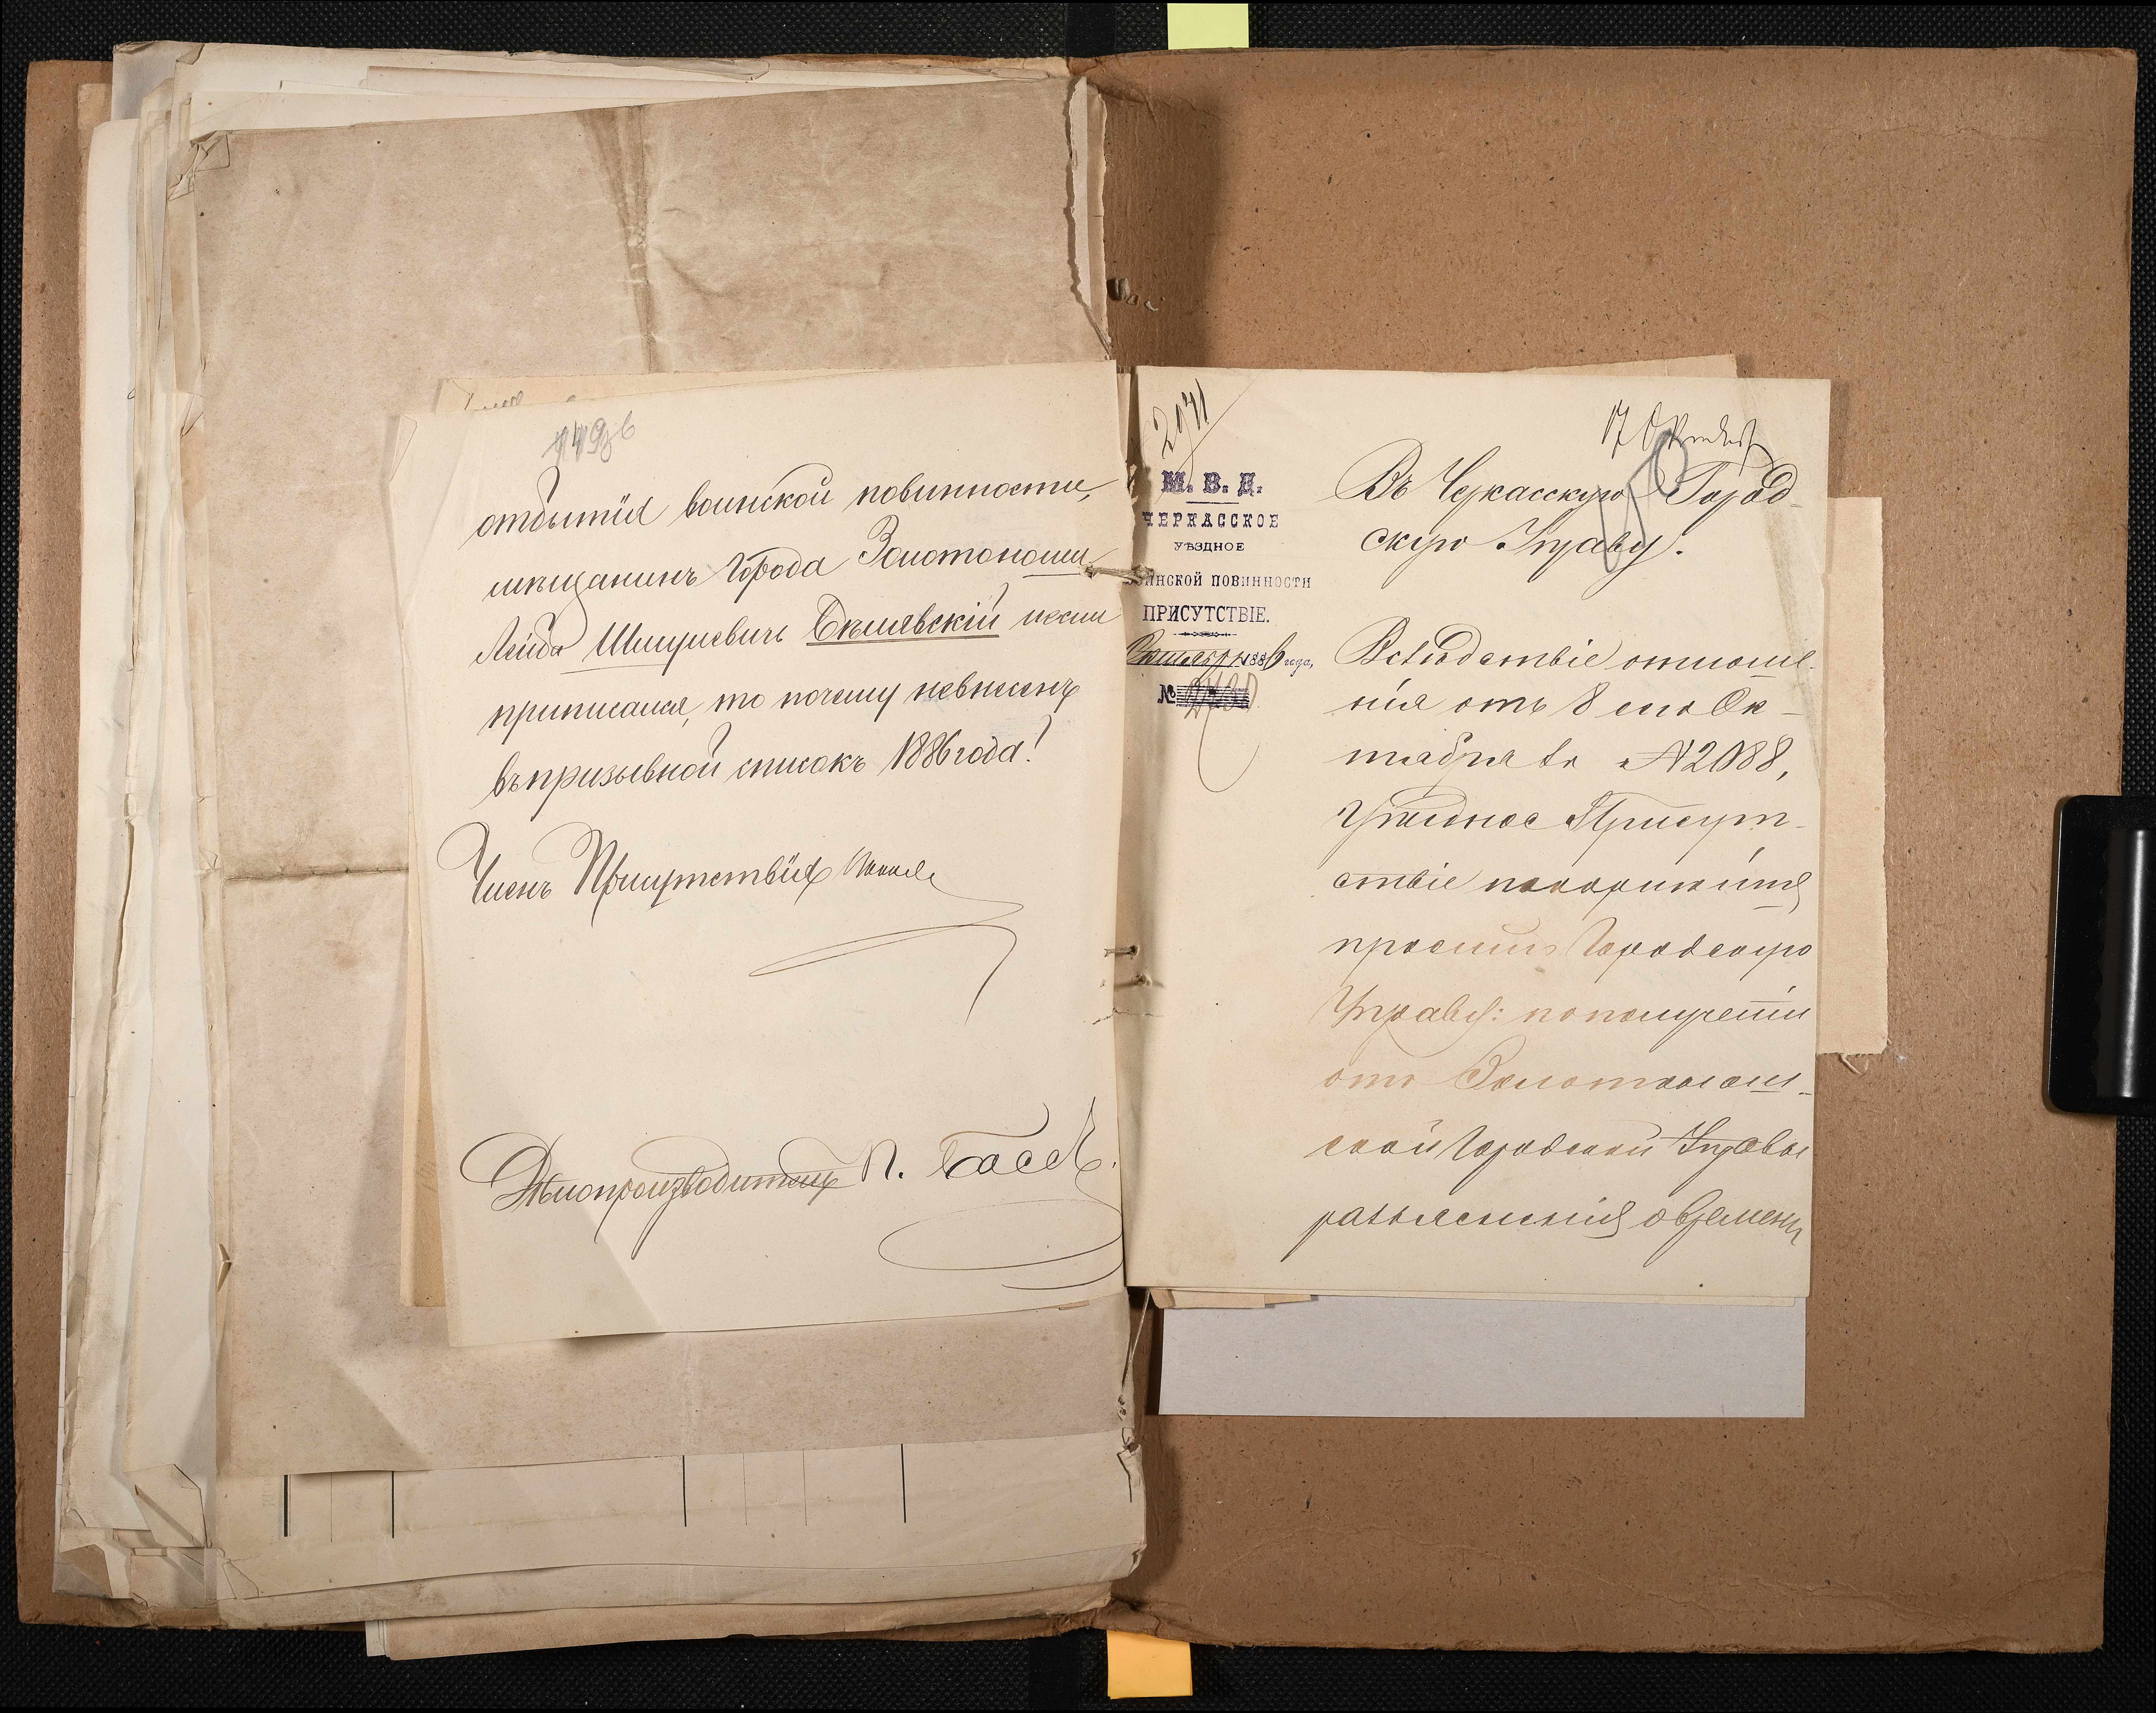 1496
отбытія воинской повинности,
мѣщанинъ города Золотоноши
Лейба Шмулевичъ Бѣлявскій если
приписался, то почему невнесенъ
въ призывной списокъ 1886 года?
Членъ Присутствія
Дѣлопроизводитель П. Басъ
2071
17 Октября
М. В. Д.
ЧЕРКАССКОЕ
УѢЗДНОЕ
ВОИНСКОЙ ПОВИННОСТИ
ПРИСУТСТВІЕ.
Октября 1886 года,
№
Въ Черкасскую Город-
скую Управу.
Вслѣдствіе отноше-
нія отъ 8 сего Ок-
тября за №2088,
Уѣздное Присут-
ствіе покорнѣйше
проситъ Городскую
Управу: по полученіи
отъ Золотонош-
ской Городской Управы
разъясненія о времени